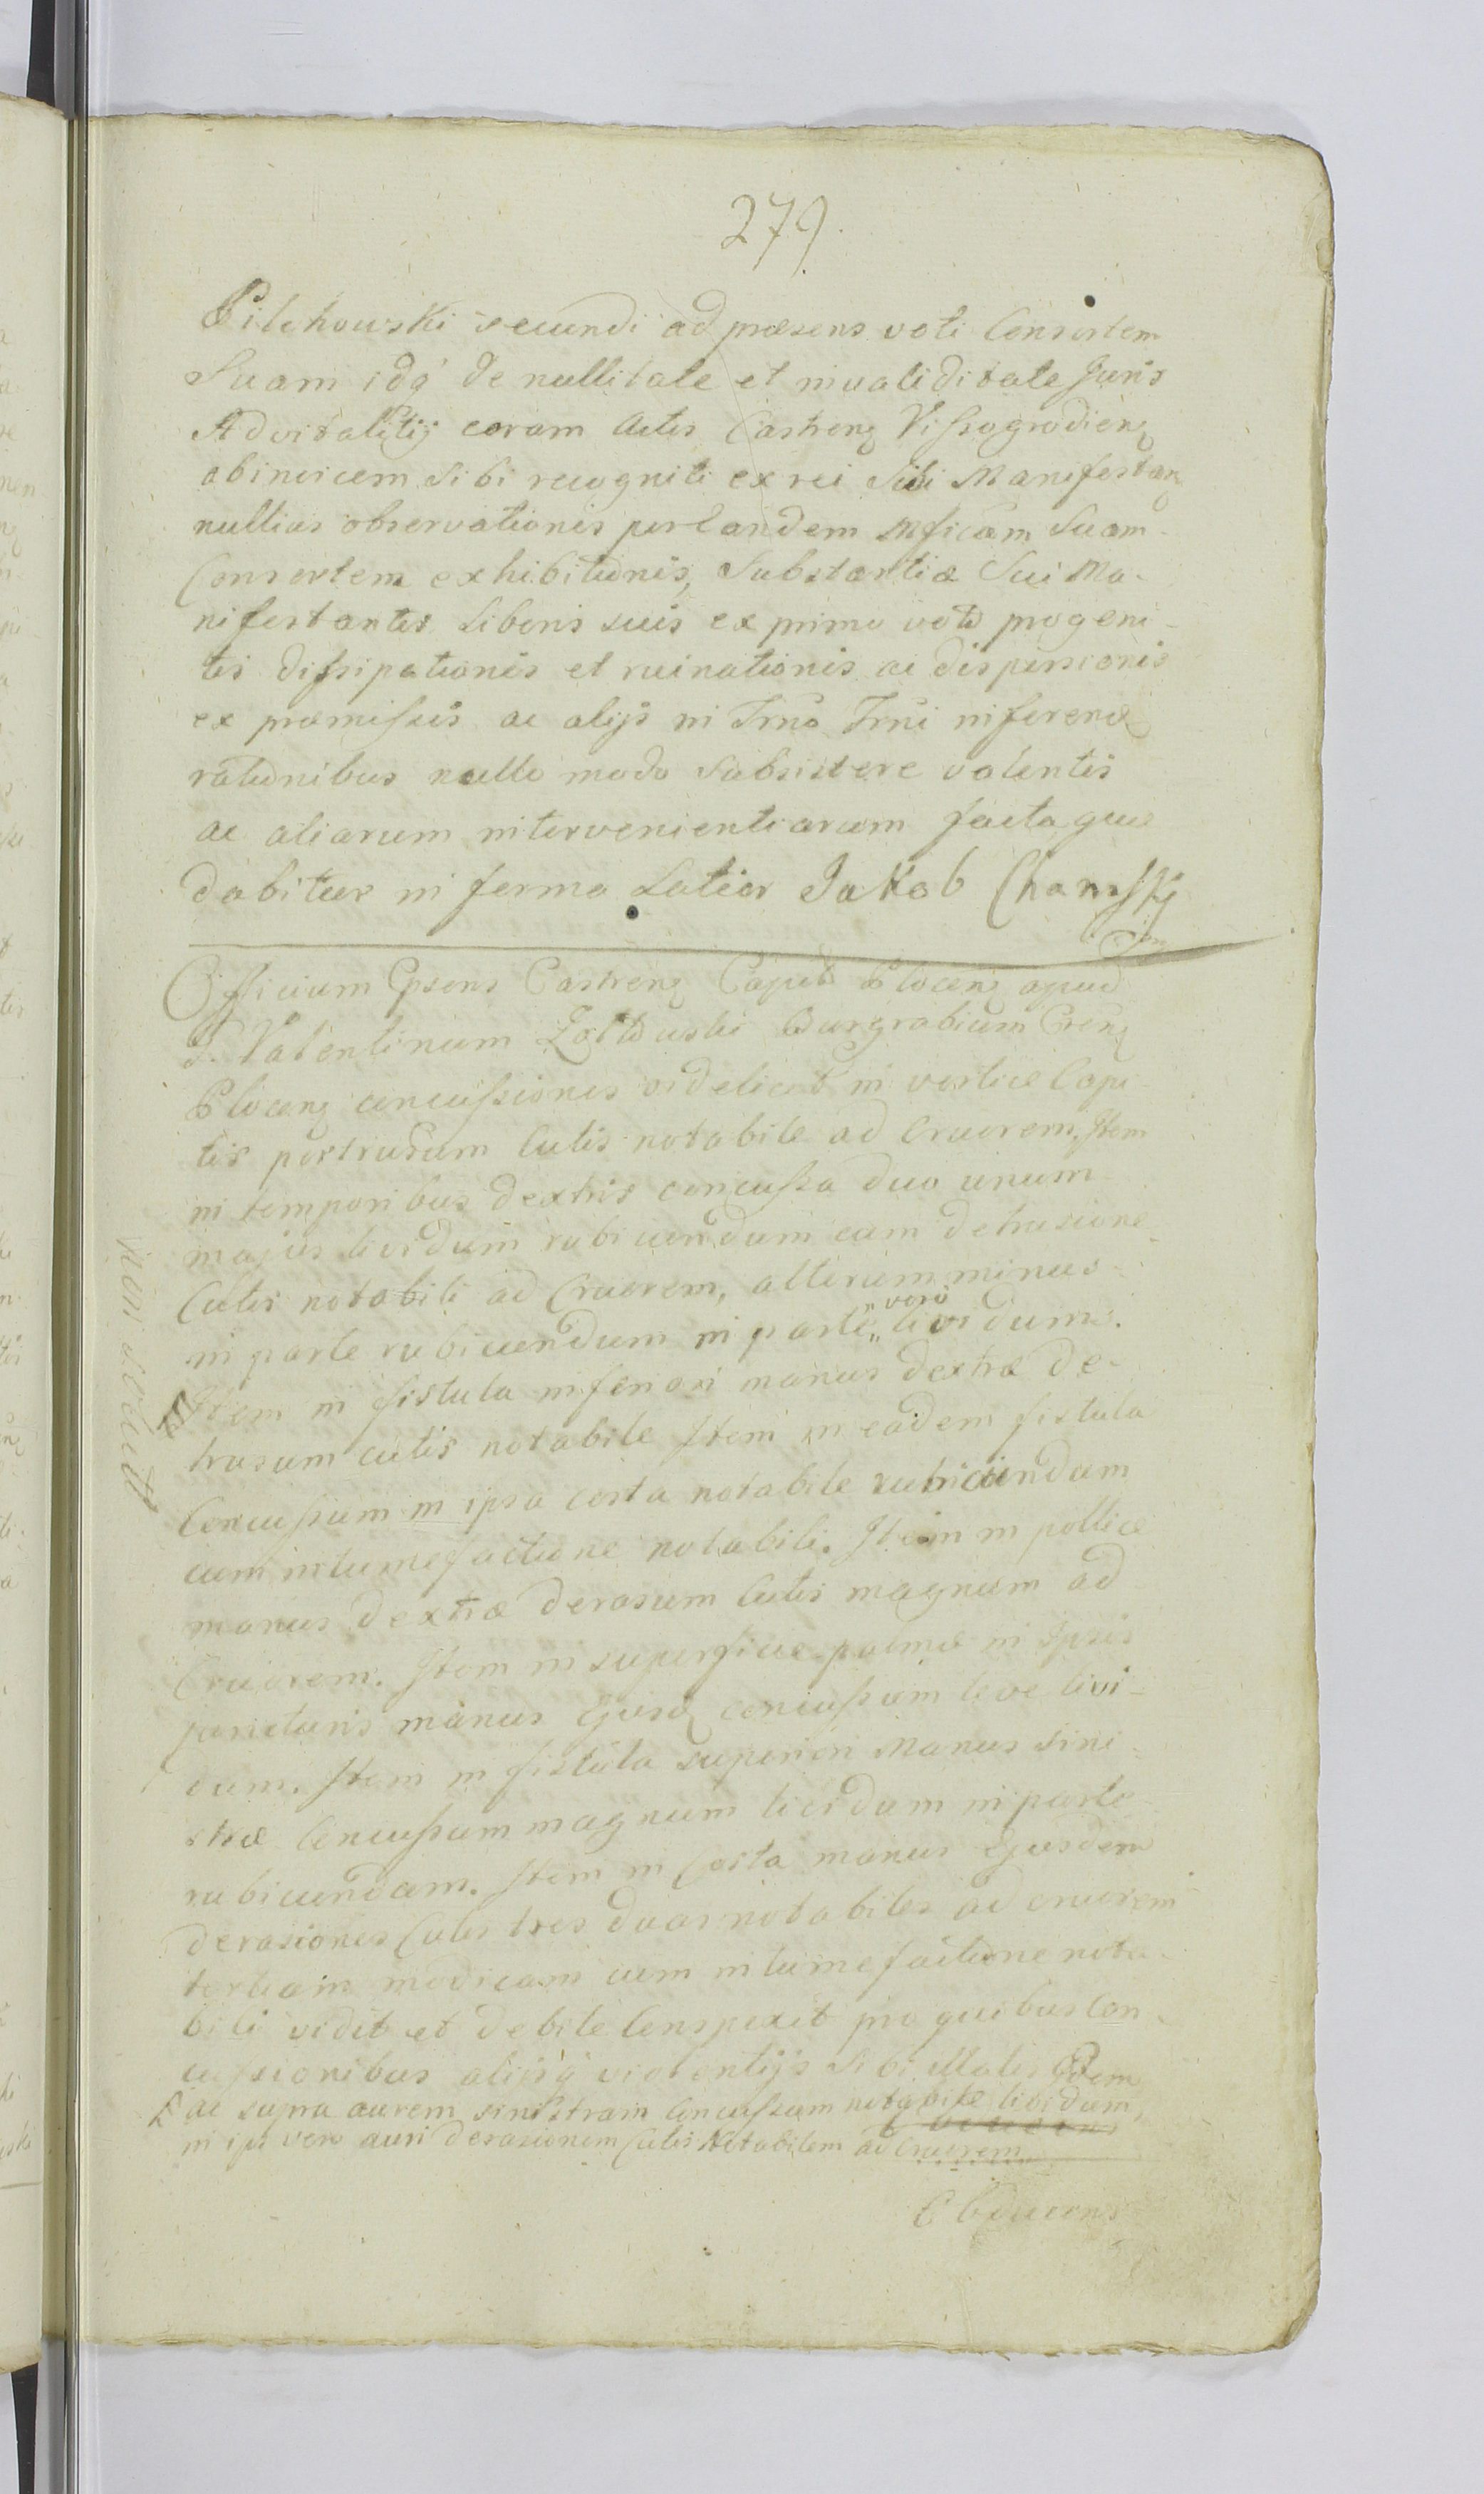 279.
Pilchowski secundi ad præsens voti Consortem
Suam idq́ de nullitate et invaliditate Juris
Advitalitij coram Actis Castren Vissogrodien
abinvicem sibi recogniti ex rei sui Manifestan
nullius observationis per eandem Mficam Suam
Consortem exhibitionis, Substantiæ Sui Ma-
nifestantis Liberis suis ex primo voto progeni-
tis dissipationis et ruinationis ac dispersionis
ex præmissis ac alijs in Trno Trni inferend
rationibus nullo modo subsistere valentis
ac aliarum intervenientiarum facta que
dabitur in forma Latior Jakob Chamski
Officium Castren Capit Plocen apud
Valentinum Burgrabium Cren
Plocen concussiones videlicet in vertice Capi-
tis postrusum Cutis notabile ad Cruorem. Item
in temporibus dextris concussa duo unum
majus lividum rubicundum cum detrusione
Cutis notabili ad Cruorem, alterum minus
in parte rubicundum in parte vero lividum.
Item in fistula inferiori manus dextræ de-
trusum cutis notabile Item in eadem fistula
Concussum in ipsa costa notabile rubicundum
cum intumefactione notabili. Item in pollice
manus dextræ derasum Cutis magnum ad
Cruorem. Item in superficie palmæ in ipsis
juncturis manus Ejusd concussum leve livi-
dum. Item in fistula superiori Manus sini-
stræ Concussum magnum lividum in parte
rubicundum. Item in Costa manus Ejusdem
derasiones Cutis tres duas notabiles ad cruorem
tertiam modicam cum intumefactione nota-
bili vidit et debite Conspexit pro quibus Con-
cussionibus alijsq́ violentijs sibi illatis
ac supra aurem sinistram Concussum notabile lividum,
in ipsa vero auri derasionem Cutis Notabilem ad Cruorem
non solvit